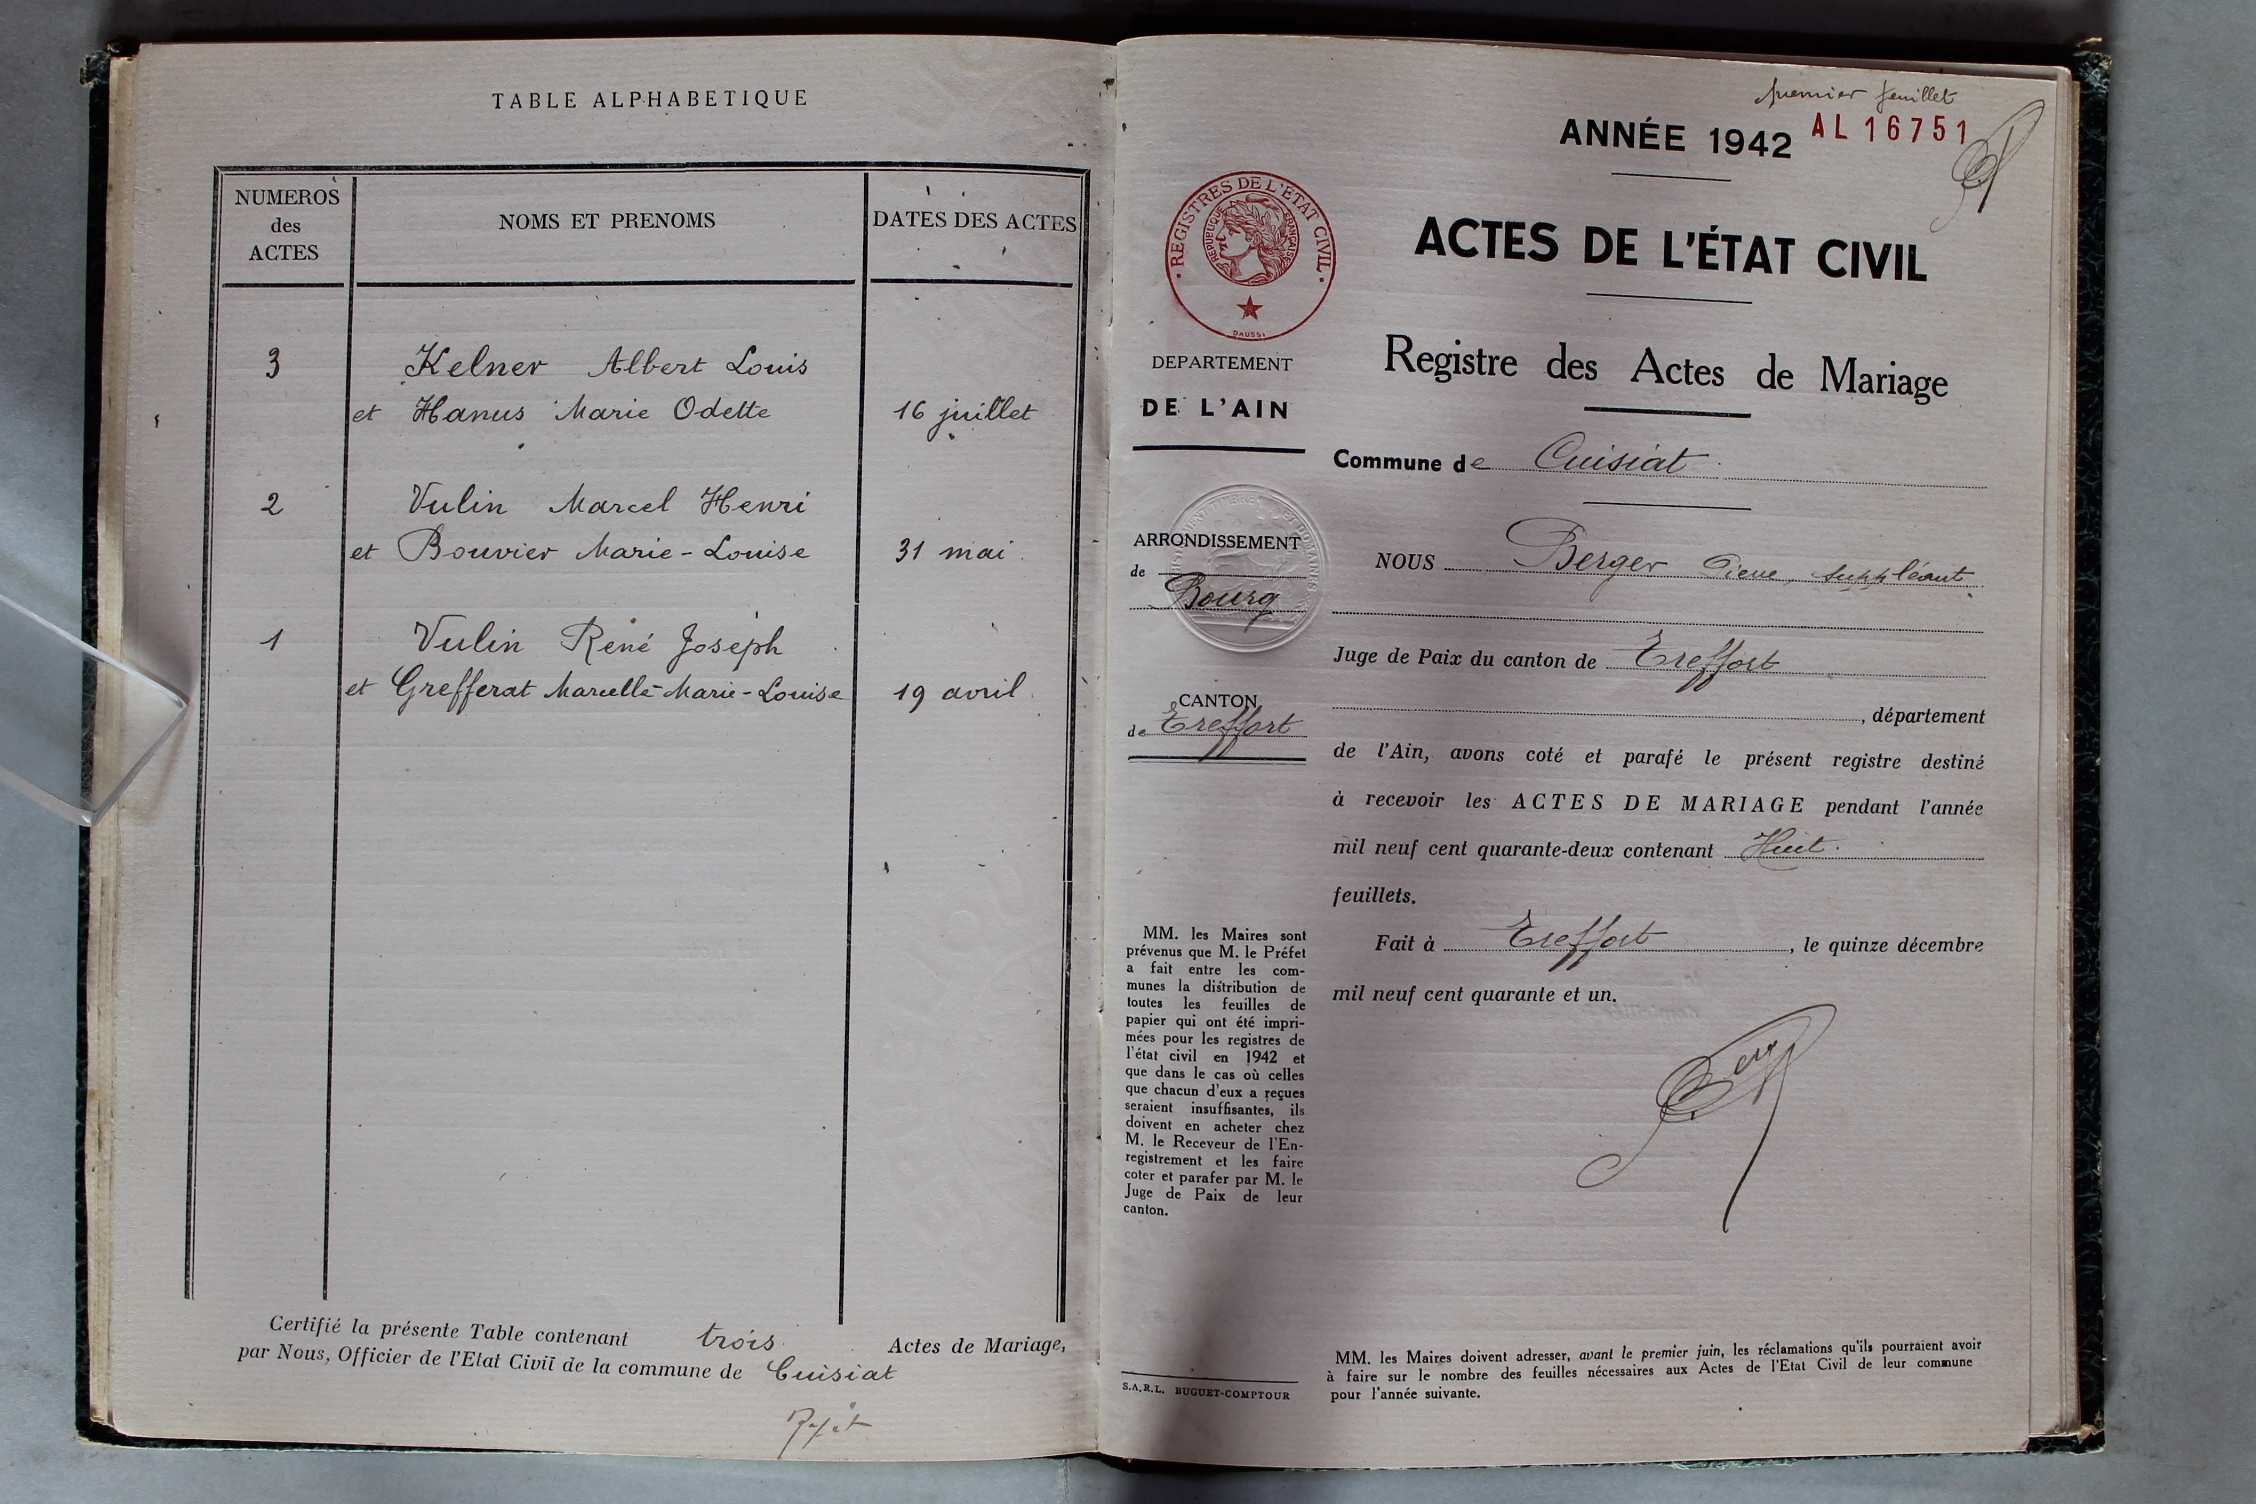 TABLE ALPHABETIQUE
NUMEROS
des
ACTES
NOMS ET PRENOMS
DATES DES ACTES
3 Kelner Albert Louis
et Hanus Marie Odette 16 juillet
2 Vulin Marcel Henri
et Bouvier Marie-Louise 31 mai
1 Vulin René Joseph
et Grefferat Marcelle-Marie-Louise 19 avril
Certifié la présente Table contenant trois Actes de Mariage,
par Nous, Officier de l'Etat Civil de la commune de Cuisiat
premier feuillet
ANNÉE 1942 AL 16751
REGISTRES DE L'ETAT CIVIL
REPUBLIQUE FRANÇAISE
DAUSSI
ACTES DE L'ÉTAT CIVIL
Registre des Actes de Mariage
DEPARTEMENT
DE L'AIN
Commune de Cuisiat
ARRONDISSEMENT
de
Bourg
CANTON
de Treffort
NOUS Berger suppléant
Juge de Paix du canton de Treffort
, département
de l'Ain, avons coté et parafé le présent registre destiné
à recevoir les ACTES DE MARIAGE pendant l'année
mil neuf cent quarante-deux contenant Huit.
feuillets.
Fait à Treffort, le quinze décembre
mil neuf cent quarante et un.
MM. les Maires sont
prévenus que M. le Préfet
a fait entre les com-
munes la distribution de
toutes les feuilles de
papier qui ont été impri-
mées pour les registres de
l'état civil en 1942 et
que dans le cas où celles
que chacun d'eux a reçues
seraient insuffisantes, ils
doivent en acheter chez
M. le Receveur de l'En-
registrement et les faire
coter et parafer par M. le
Juge de Paix de leur
canton.
S.A.R.L. BUGUET-COMPTOUR
MM. les Maires doivent adresser, avant le premier juin, les réclamations qu'ils pourraient avoir
à faire sur le nombre des feuilles nécessaires aux Actes de l'Etat Civil de leur commune
pour l'année suivante.